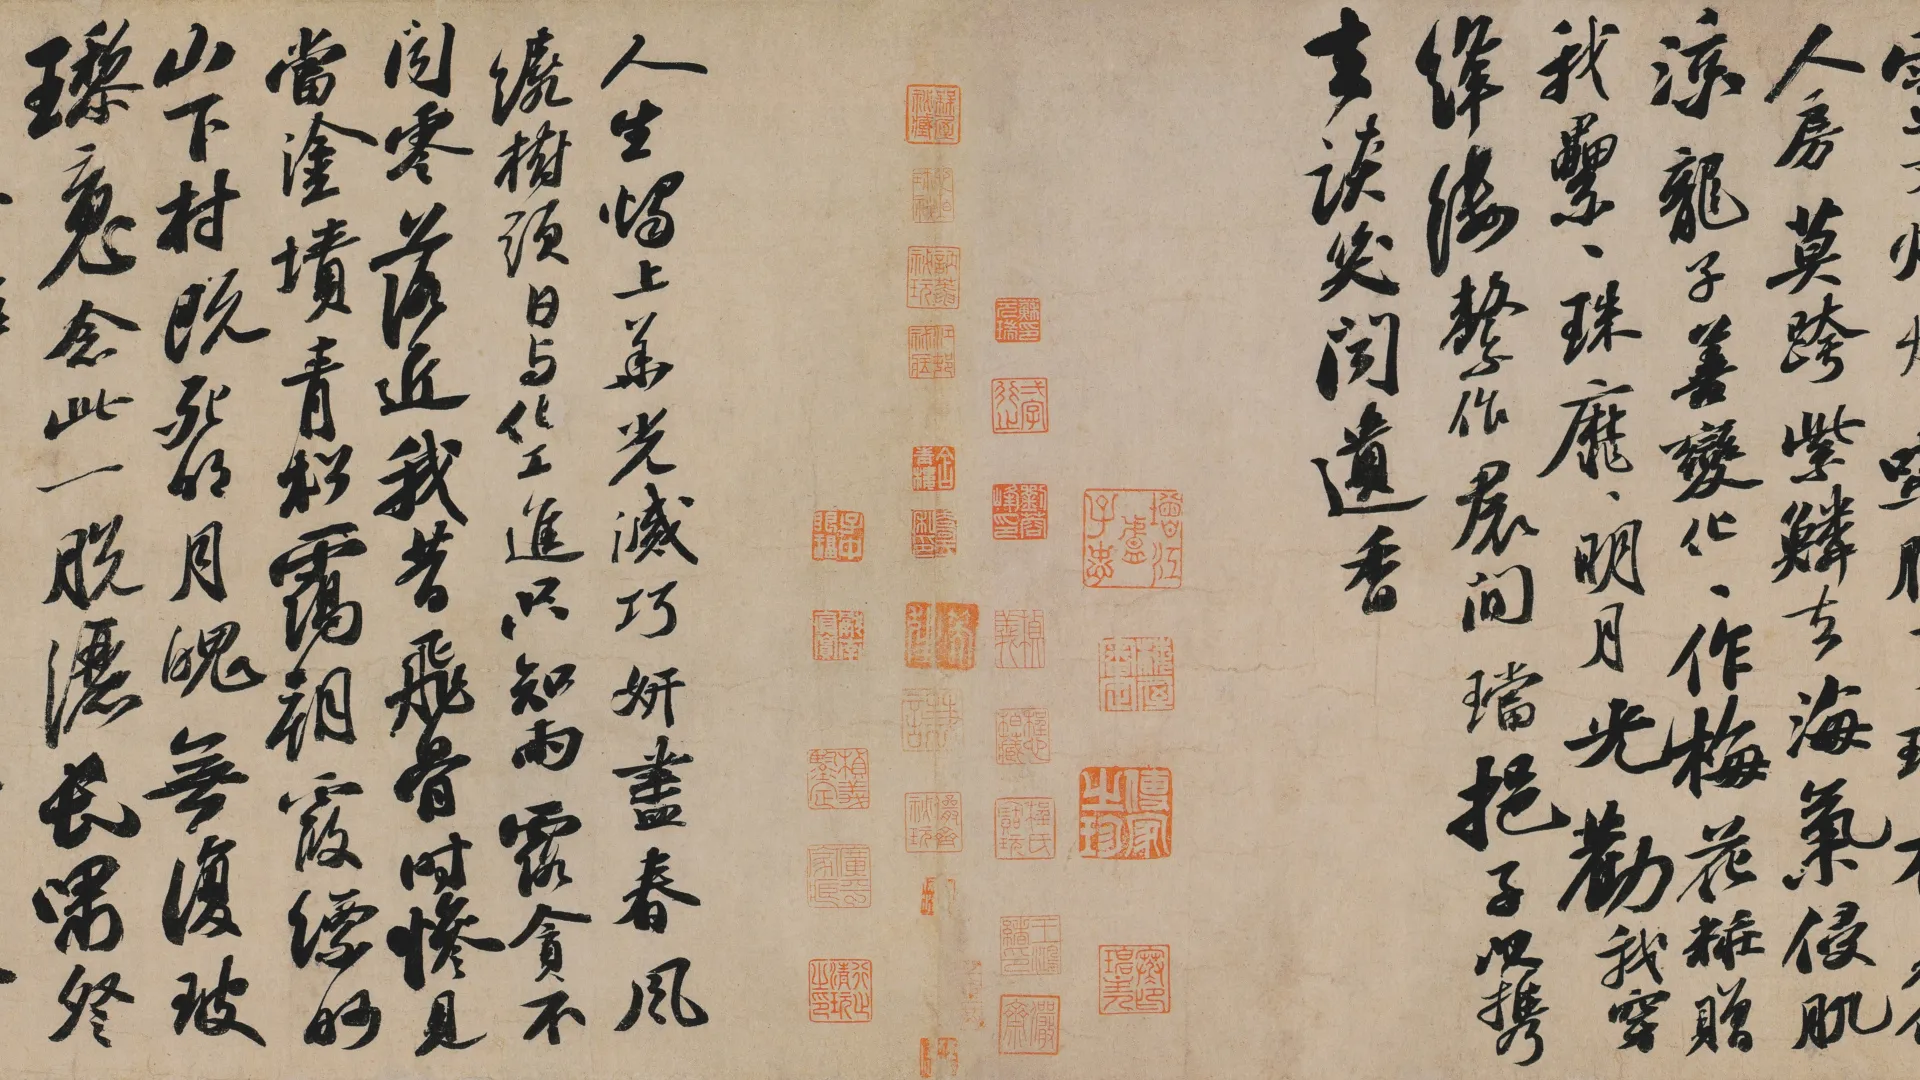 人房莫跨紫鱗去海氣侵肌
涼龍子善變化、作梅花粧贈
我纍、珠靡、明月光勸我穿
絳縷繫作裾間璫挹子以攜
去談笑聞遺香
人生燭上華光滅巧妍盡春風
繞樹頭日与化工進只知雨露貪不
聞零落近我昔飛骨時慘見
當塗墳青松靄朝霞縹緲
山下村既死明月魄無復玻
瓈魂念此一脫灑長嘯祭